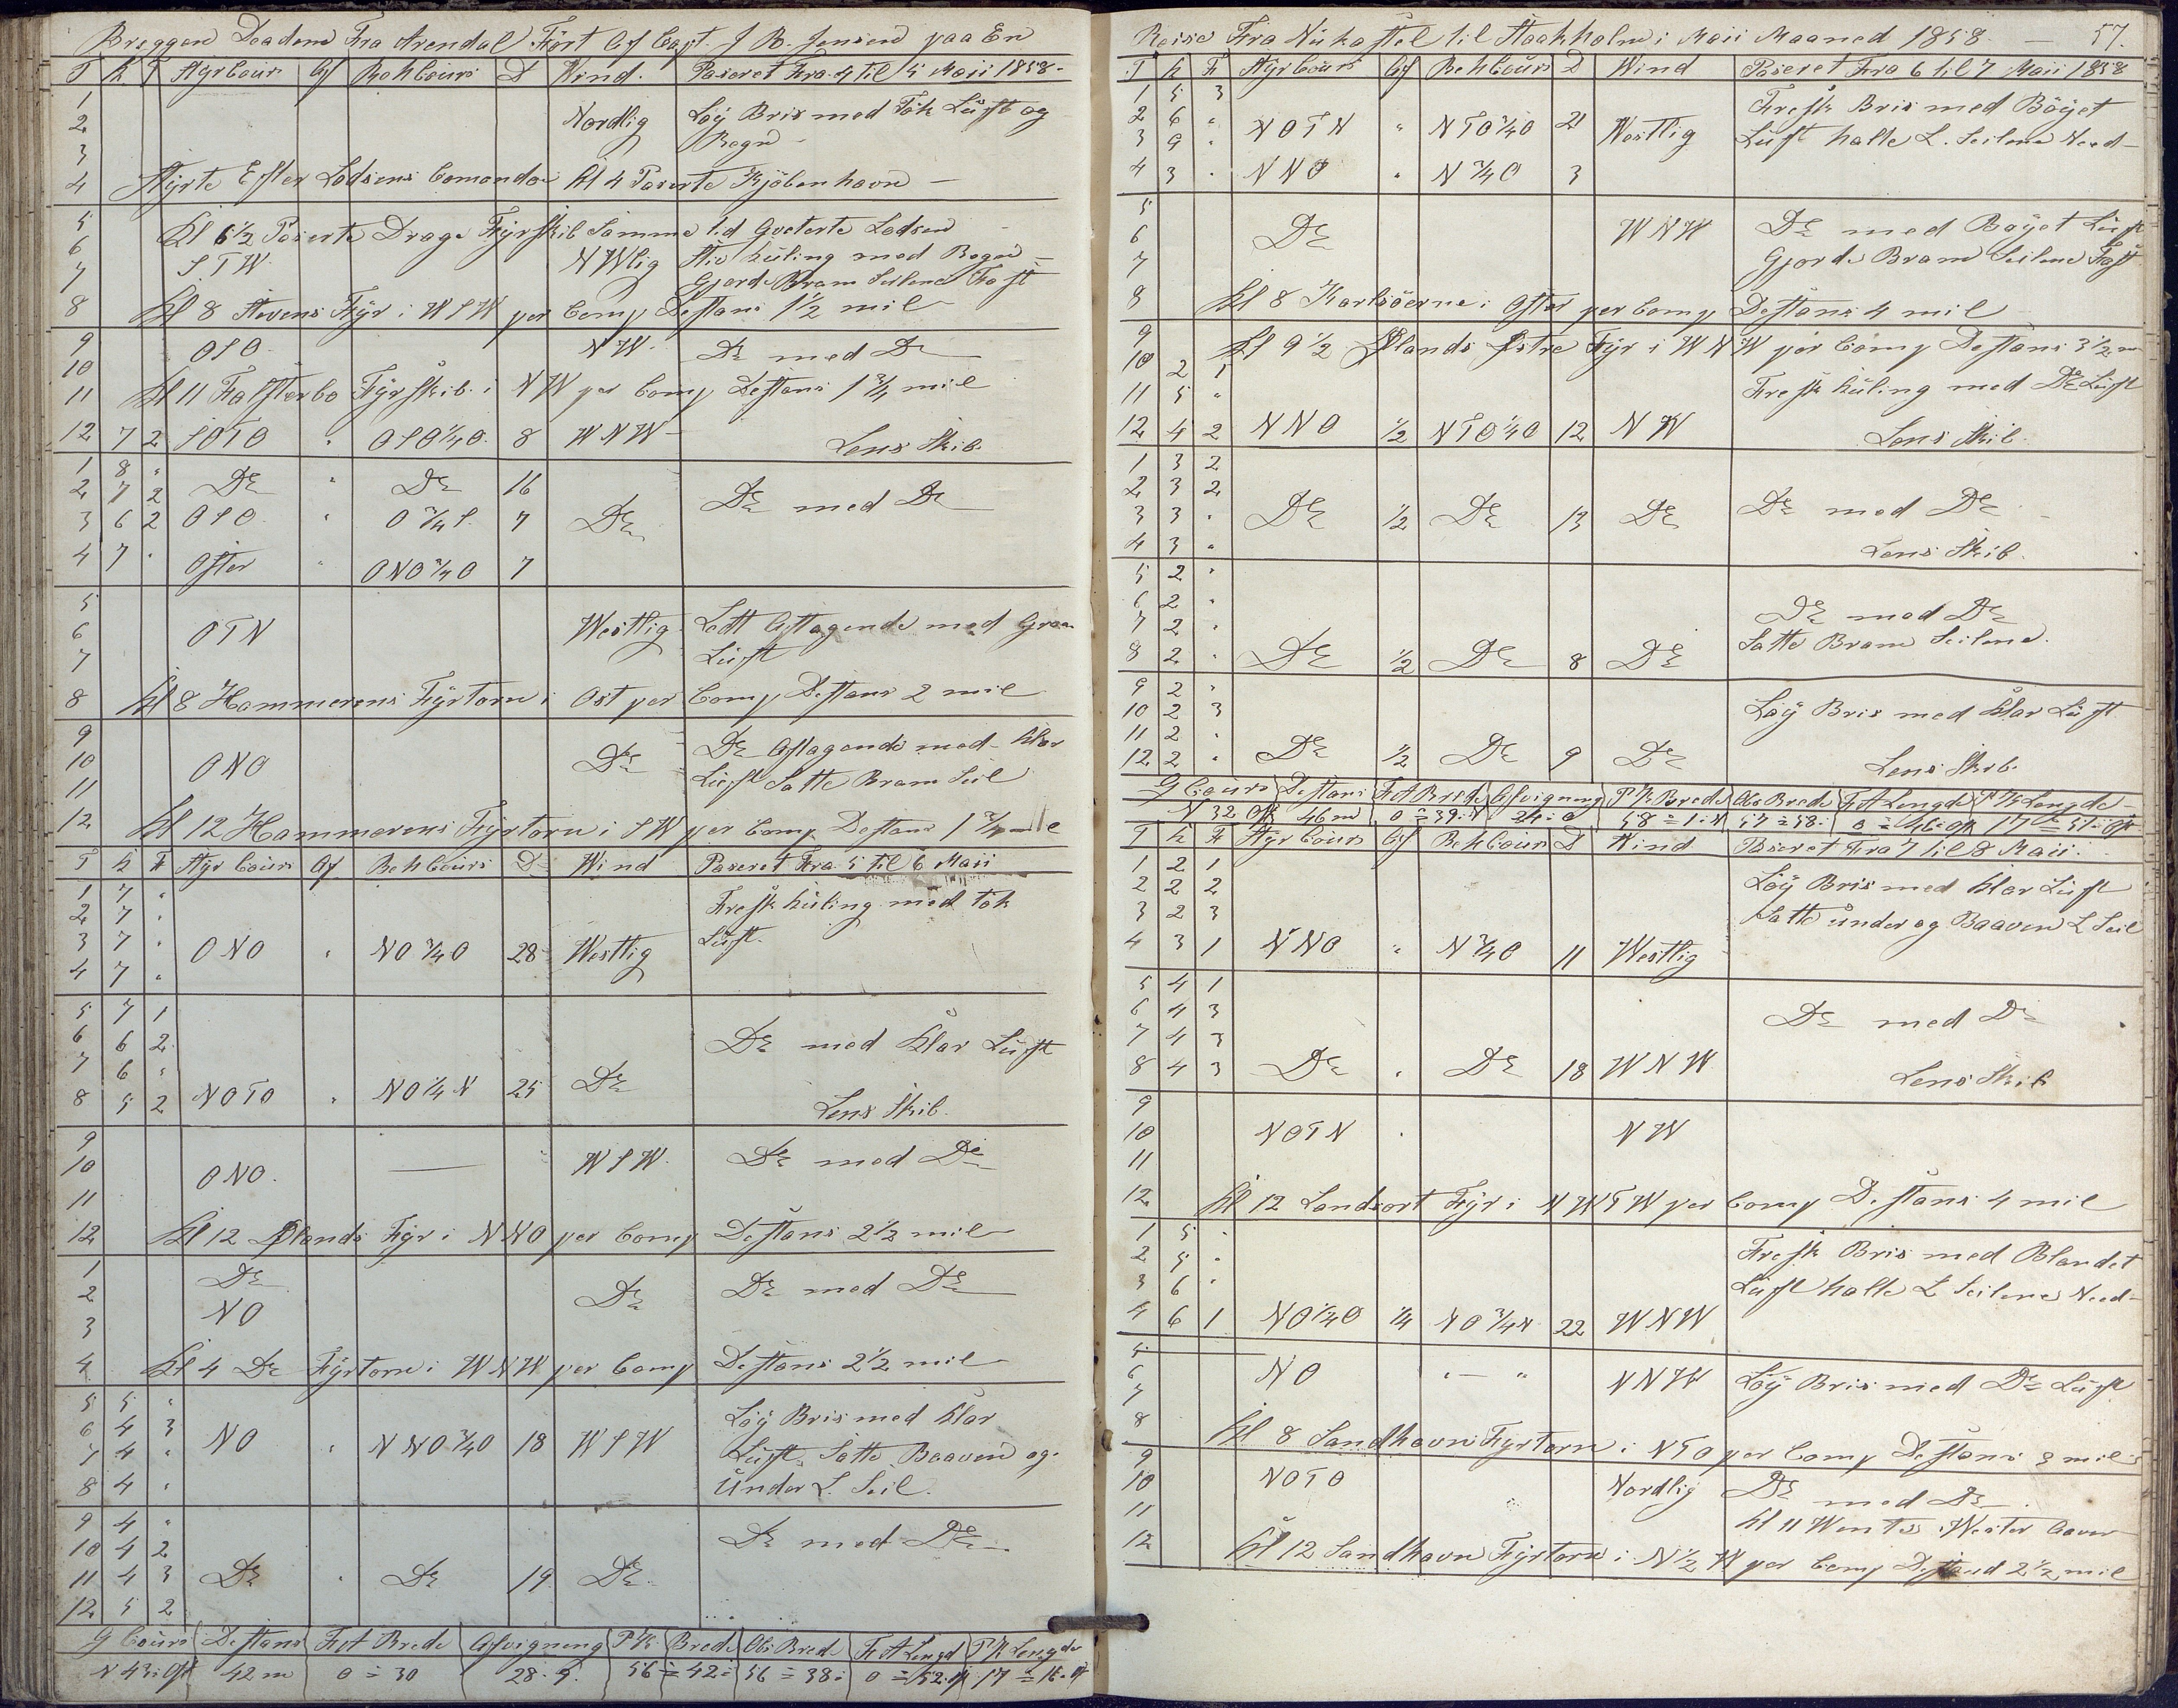 Briggen Deadem Fra Arendal Fört Af Capt. J B. Jensen paa En
T K F Styrcours Af Behcours D Wind. Paseret Fra 4 til 5 Maii 1858-
1
2 Nordlig Löy Bris med Tök Lüft og
3 Regn
4 Styrte Efter Lodsens Comando Kl 4 Paserte Kjöbenhavn
5 Kl 6 1/2 Paserte Drage Fyrskib Samme tid Qveterte Lodsen
6 S T W. N Wlig Stiv Küling med Regn
7 Gjorde Bram Seilene Fast
8 Kl 8 Stevens Fyr i W S W per Comp Destans 1 1/2 mil
9 O S O. N W. De med De
10
11 Kl 11 Falsterbo Fyrskib i N W per Comp Destans 1 3/4 mil
12 7 2 S O T O " O S O 1/4 O. 8 W N W Lens Skib.
1 8 "
2 7 2 De " De 16 De med De
3 6 2 O S O " O 3/4 S. 7 De
4 7 " Oster " O N O 3/4 O 7
5
6 O T N Westlig Lidt Aftagende med Graa
7 Lüft
8 Kl 8 Hammerens Fyrtorn i Ost per Comp Destans 2 mil
9 De Aftagende med Klar
10 O N O De Lüft Satte Bram Seil
11
12 Kl 12 Hammerens Fyrtorn i S W per Comp Destans 1 3/4 mil
T K F Styr Cours Af Beh Cours D Wind Paseret Fra 5 til 6 Maii
1 7 " Fresk Küling med tök
2 7 " Lüft.
3 7 " O N O " N O 3/4 O 28 Westlig
4 7 "
5 7 1
6 6 2 De med Klar Lüft
7 6 "
8 5 2 N O T O " N O 1/4 N 25 De Lens Skib.
9
10 O N O. W S W. De med De
11
12 Kl 12 Ølands Fyr i N N O per Comp Destans 2 1/2 mil
1 De
2 N O De De med De
3
4 Kl 4 De Fyrtorn i W N W per Comp Destans 2 1/2 mil
5 5 " Löy Bris med Klar
6 4 3 N O " N N O 3/4 O 18 W S W Lüft, Satte Baaven og
7 4 "
8 4 " Ünder L. Seil.
9 4 "
10 4 2 De med De
11 4 3 De " De 19 De
12 5 2
G Cours Destans F A Brede Afvigning P K Brede Obs Bred F A Lengd P K Lengde
N 43 Ost 42 m 0 = 30 28. 9. 56 = 42 56 = 38 0 = 52 Ost 17 = 16 Ost
Reise Fra Nükastel til Staakholm i Maii Maaned 1858. 57.
T K F Styrcours Af Behcours D Wind Paseret Fra 6 til 7 Maii 1858
1 5 3 Fresk Bris med Böyet
2 6 " N O T N " N T O 3/4 O 21 Westlig Lüft halte L. Seilene Need
3 9 "
4 3 " N N O " N 3/4 O 3
5
6 De W N W De med Böyet Lüft
7 Gjorde Bram Seilene Fast
8 Kl 8 Karlsöerne i Oster per Comp Destans 4 mil
9 Kl 9 1/2 Ølands Østre Fyr i W N W per Comp Destans 3 1/2 m
10 2 1
11 5 " Fresk Küling med De Lüft
12 4 2 N N O 1/2 N T O 1/4 O 12 N W Lens Skib.
1 3 2
2 3 2
3 3 " De 1/2 De 13 De De med De
4 3 " Lens Skib.
5 2 "
6 2 " De med De
7 2 " Satte Bram Seilene.
8 2 " De 1/2 De 8 De
9 2 " Löy Bris med Klar Lüft
10 2 3
11 2 "
12 2 " De 1/2 De 9 De Lens Skib.
G Cours Destans F A Brede Afvigning P K Brede Obs Brede F A Lengde P K Lengde
N 32 Ost 46 m 0 = 39 N 24 = O 58 = 1 N 57 = 58 0 = 46 Ost 17 = 51 Ost
T K F Styr Cours Af Beh Cours D Wind Paseret Fra 7 til 8 Maii
1 2 1 Löy Bris med Klar Lüft
2 2 2 Satte ünder og Baaven L Seil
3 2 3
4 3 1 N N O " N 3/4 O 11 Westlig
5 4 1
6 4 3 De med De
7 4 3
8 4 3 De " De 18 W N W Lens Skib
9
10 N O T N " N W
11
12 Kl 12 Landsort Fyr i N W T W per Comp Destans 4 mil
1 5 " Fresk Bris med Blandet
2 5 " Lüft halte L Seilene Need
3 6 "
4 6 1 N O 1/4 O 1/4 N O 3/4 N 22 W N W
5
6 N O " — " N N W Löy Bris med De Lüft
7
8 Kl 8 Sandhavn Fyrtorn i N T O per Comp Destans 3 mil
9
10 N O T O Nordlig De med De
11 Kl 11 Wentes Wester Over
12 Kl 12 Sandhavn Fyrtorn i N 1/2 W per Comp Destans 2 1/2 mil